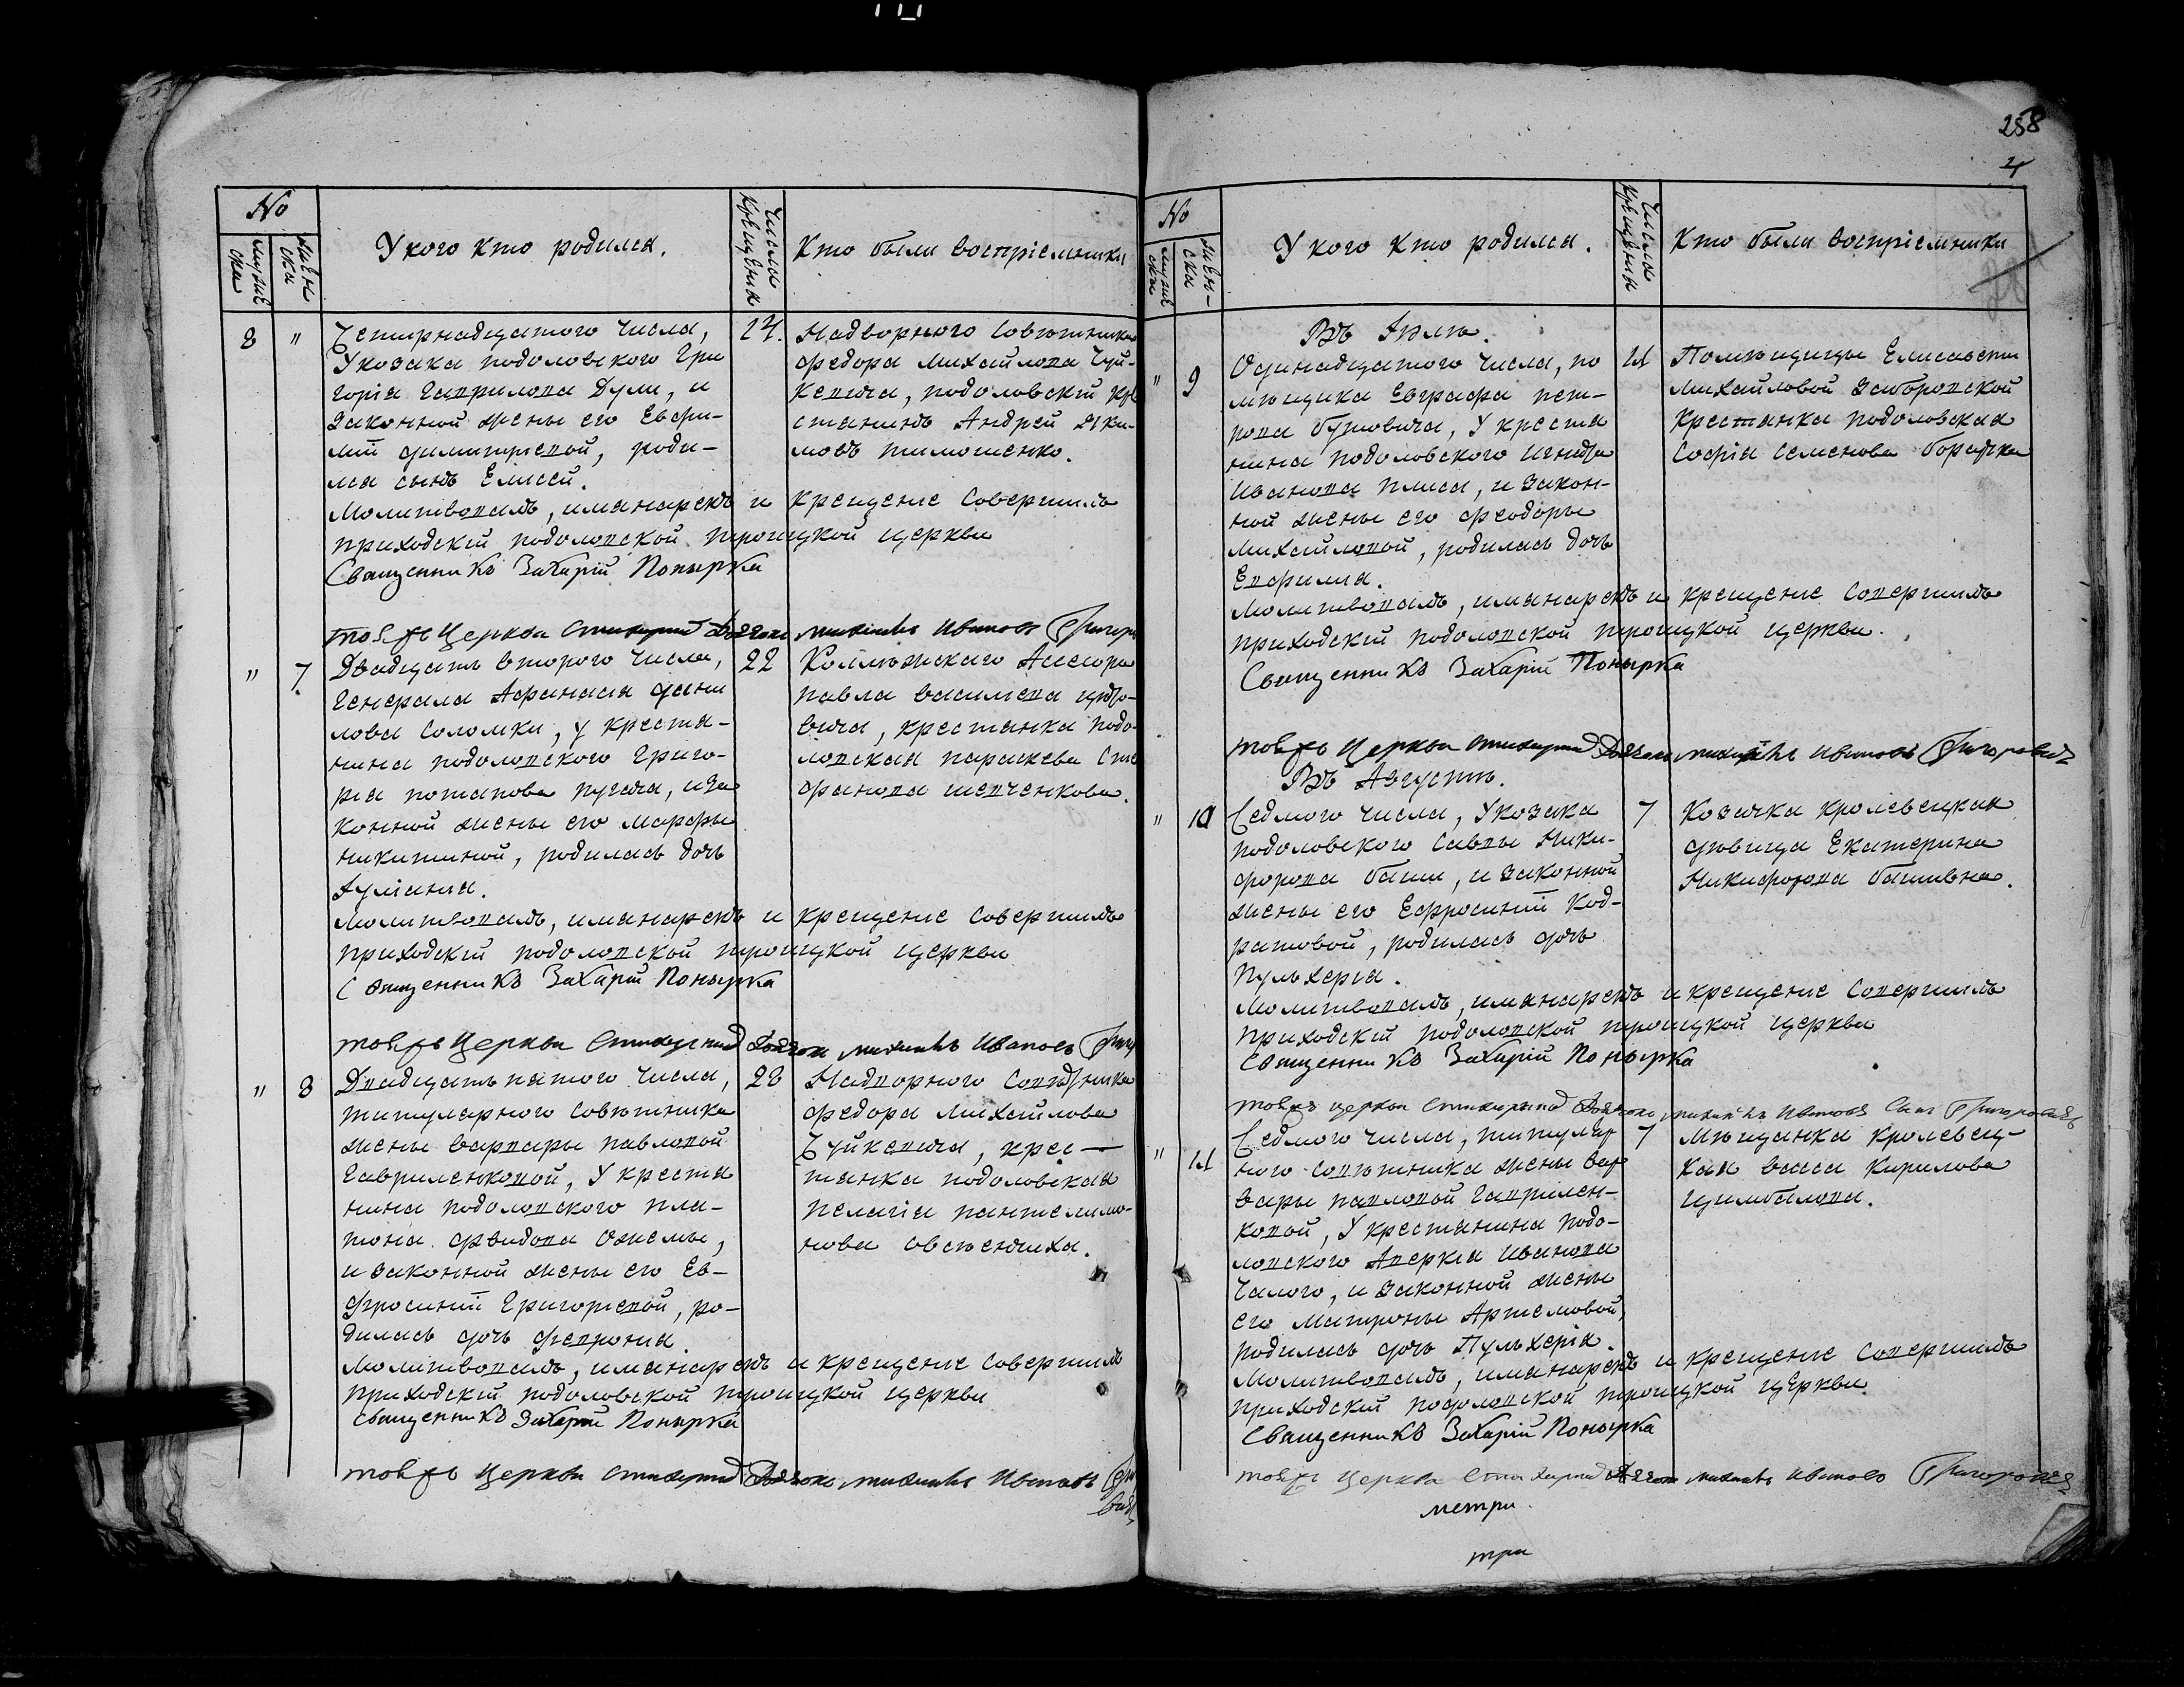 258
4
№
мужеска
женска
У кого кто родился.
Числа крещения
Кто были восприемники
8 " Четирнадцатого числа,
У козака подоловского Гри
горія Гаврилова Дули, и
законной жены его Евфи-
міи димитріевой, роди-
лся сынъ Елисей.
14.
Надворного Совѣтника
Федора Михайлова Чуй-
кевича, подоловскій кре
стянинъ Андрей Яки-
мовъ тимошенко.
Молитвовалъ, именарекъ и крещение Совершилъ
приходскій подоловской троицкой церкви
Священникъ Захарій Понырка
тоейжъ Церкви Стихарний Дьячокъ михаилъ Ивановъ Григоро
" 7 Двадцать второго числа,
Генерала Афанасия дани
лова Соломки, у крестя-
нина подоловского Григо-
рія потапова пугача, иза
конной жены его марфы
никитиной, родилась дочь
Іулианія.
22
Коллѣжскаго Асессора
павла василева
вича, крестянка подо-
ловская параскева Сте
фанова шевченкова.
молитвовалъ, именарекъ и крещение совершилъ
приходскій подоловской троицкой церкви
Священникъ Захарій Понырка
тоейжъ Церкви Стихарний Дьячок михаилъ Ивановъ Григ
" 8 Двадцать пятого числа,
титулярного Совѣтника
жены варвары павловой
Гавриленковой, У крестя
нина подоловского пла-
тона Фвидова Ожемы,
и законной жены его Ев-
фросиніи Григоріевой, ро-
дилась дочь Феврония.
28
Надворного Совѣтника
Федора Михайлова
Чуйкевича, крес-
тянка подоловская
пелагія пантелимо-
нова овсѣенчиха.
молитвовалъ, именарекъ и крещение Совершилъ
приходскій подоловской троицкой церкви
Священникъ Захарій Понырка
тоейжъ Церкви Стихарний Дьячокъ михаилъ Ивановъ Гри
вичъ
№
мужеска
женска
У кого кто родился.
Числа крещения
Кто были восприемники
Въ Іюлѣ.
" 9 Одинадцатого числа, по
мѣщика Евграфа пет-
рова бутовича, У крестя
нина подоловского Игната
Иванова плиса, и закон-
ной жены его феодоры
михайловой, родилась дочь
Евфимия.
11
Помѣщицы Елисавети
михайловой Заборовской
крестянка подоловская
Софія Семенова борадчка
молитвовалъ, именарекъ и крещение Совершилъ
приходскій подоловской троицкой церкви.
Священникъ Захарій Понырка
тоейжъ Церкви Стихарний Дьячокъ михаилъ Ивановъ Григоровичъ
Въ Августѣ.
" 10 Седмого числа, У козака
подоловского Саввы Ники-
форова баши, и законной
жены его Ефросиніи Код-
ратовой, родилась дочь
Пульхерія.
7
Козачка кролевецкая
дѣвица Екатерина
Никифорова башивна.
молитвовалъ, именарекъ и крещение Совершилъ
приходскій подоловской троицкой церкви
Священникъ Захарій Понырка
тоейжъ церкви Стихарный Дьячокъ михаилъ Ивановъ Сынъ Григоровичъ
" 11 Седмого числа, титуляр
ного Совѣтника жены вар
вары павловой Гаврилен-
ковой, У крестянина подо-
ловского Аверкія Иванова
Чалого, и законной жены
его Матроны Артемовой,
родилась дочь Пульхерія.
7
Мѣщанка кролевец-
кая васса Кирилова
цимбалова.
Молитвовалъ, именарекъ и крещение Совершилъ
приходскій подоловской троицкой церкви
Священникъ Захарій Понырка
тоейжъ Церкви Стихарний Дьячок михаилъ Ивановъ Григоровичъ
метри.
три